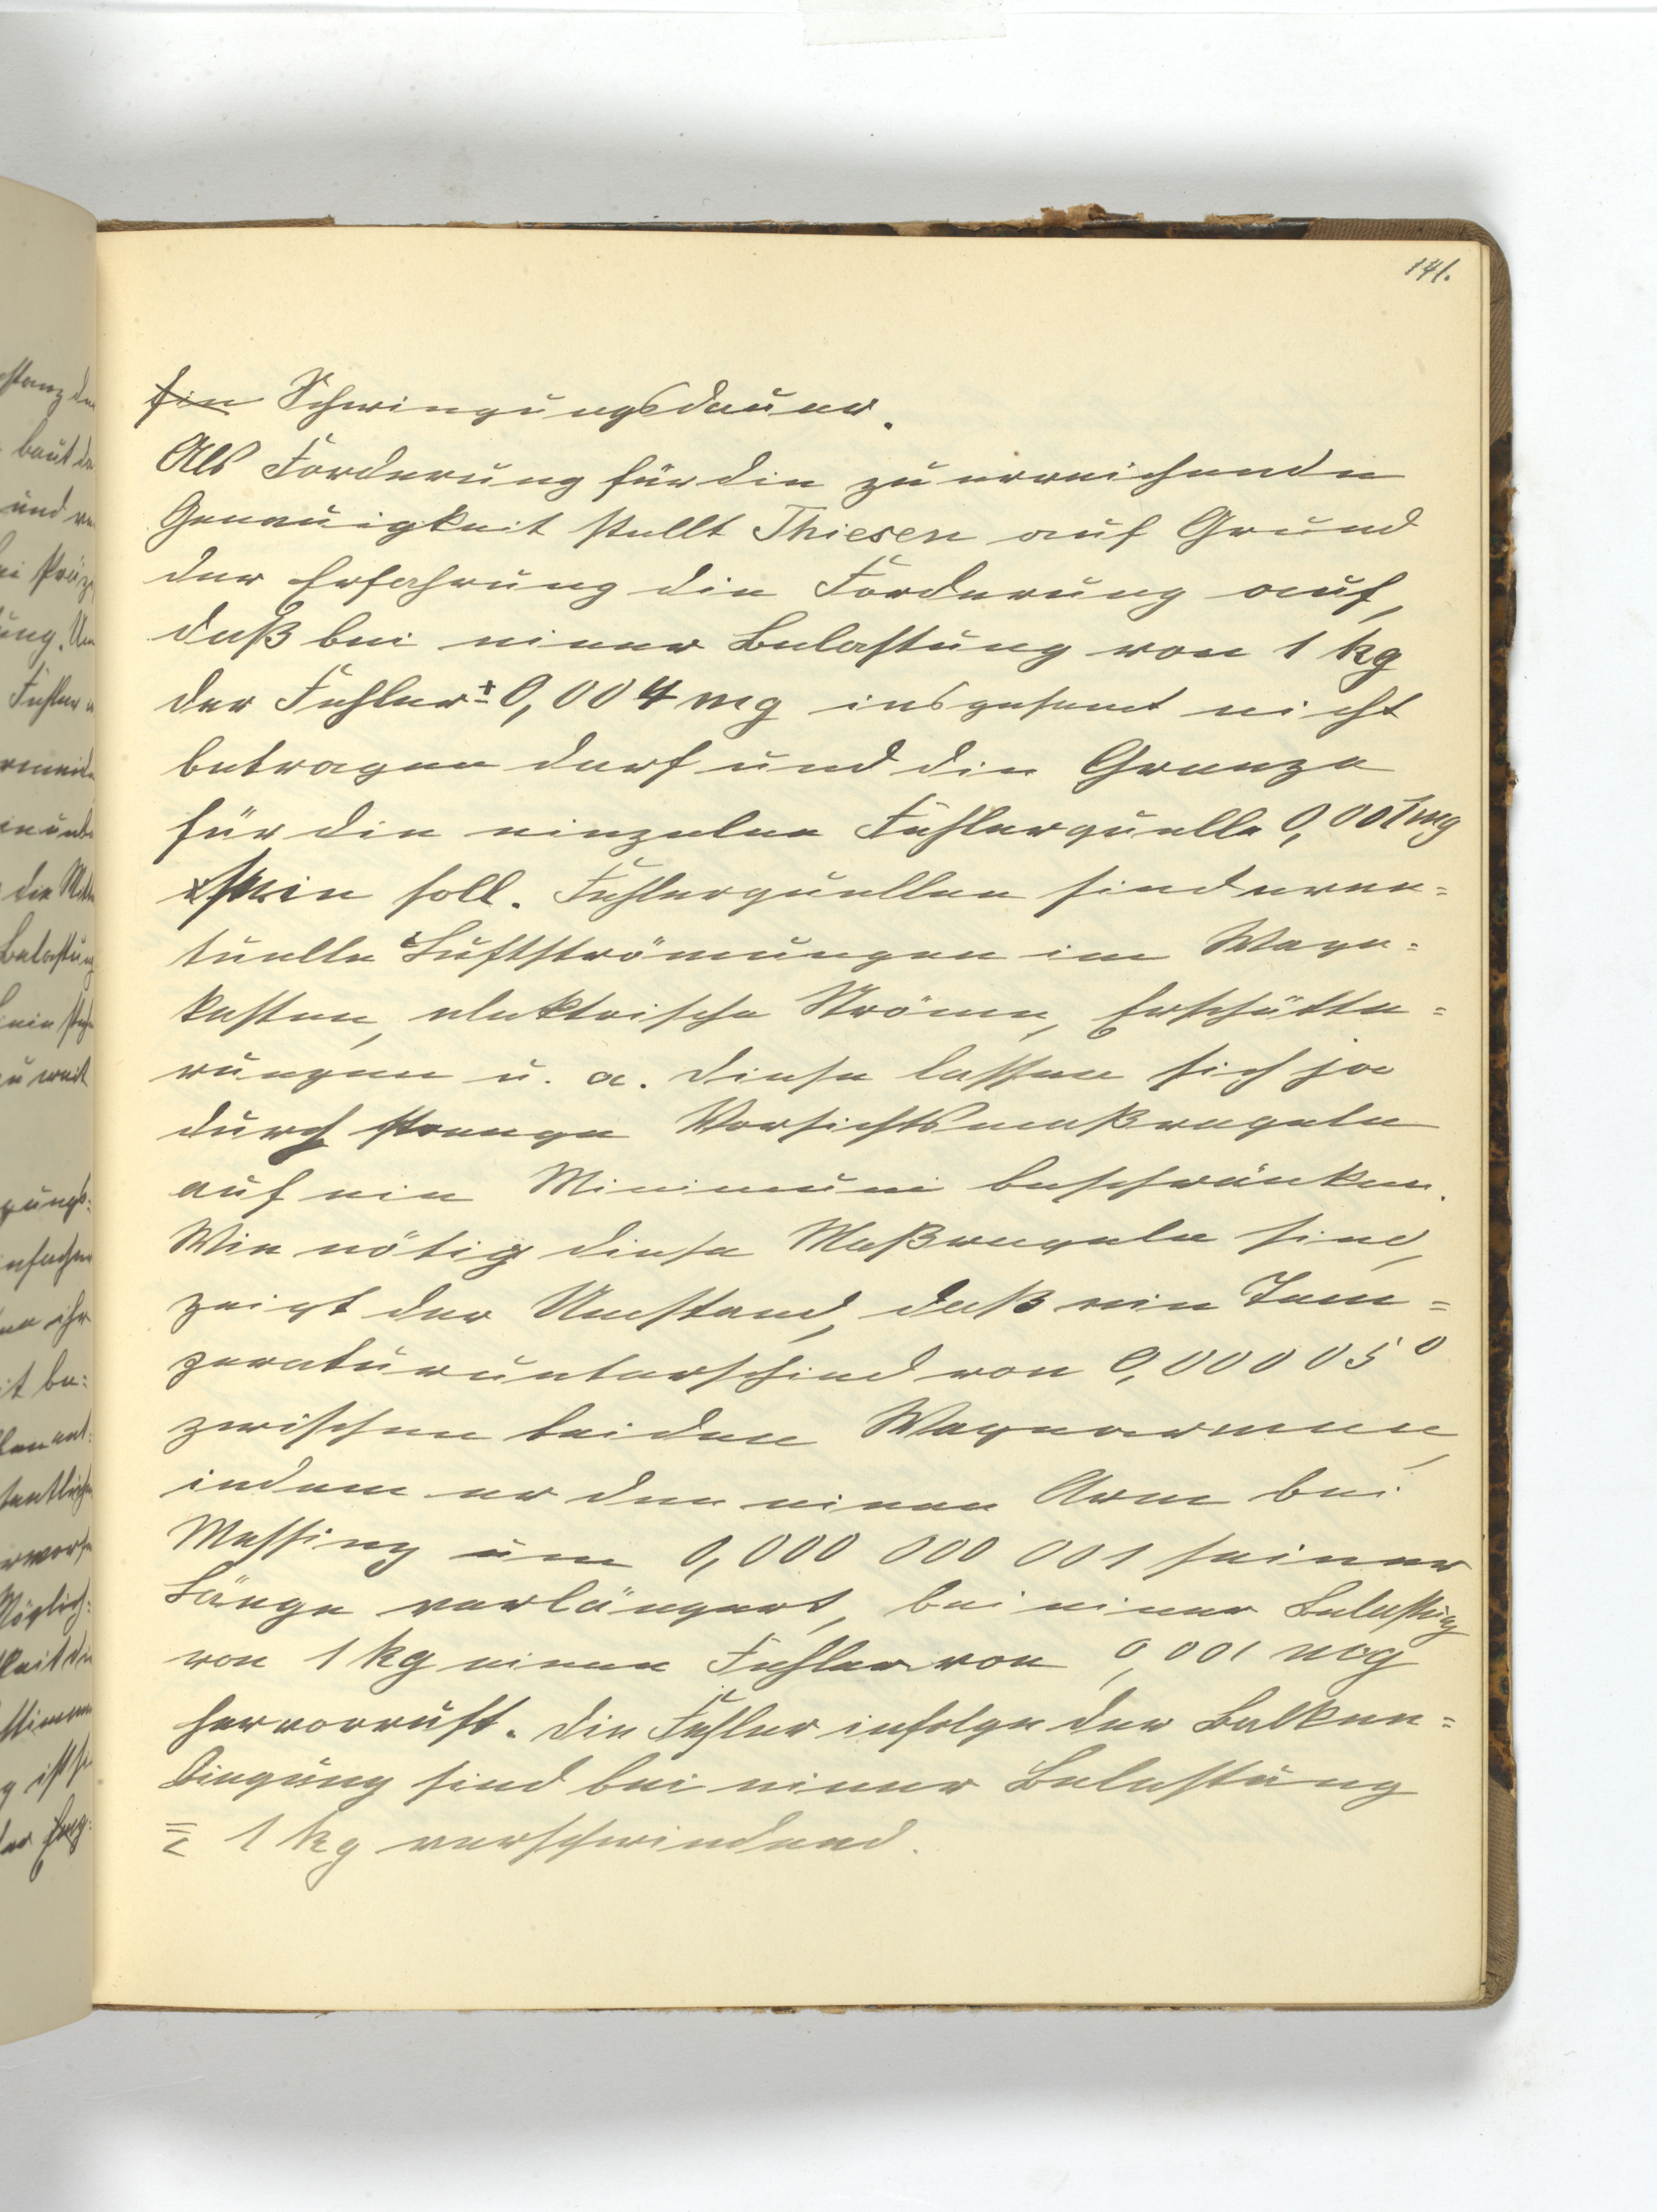 141.
Ein Schwingungsdauer.
Als Forderung für die zu erreichende
Genauigkeit stellt Thiesen auf Grund
der Erfahrung die Forderung auf,
daß bei einer Belastung von 1 kg
der Fehler ± 0,004 mg insgesamt nicht
betragen darf und die Grenze
für die einzelne Fehlerquelle 0,001 mg
sein soll. Fehlerquellen sind even=
tuelle Luftströmungen im Wage=
kasten, elektrische Ströme, Erschütte=
rungen u. a. diese lassen sich ja
durch strenge Vorsichtsmaßregeln
auf ein Minimum beschränken.
Wie nötig diese Maßregeln sind,
zeigt der Umstand, daß ein Tem=
peraturunterschied von 0,00005°
zwischen beiden Wagearmen,
indem er den einen Arm bei
Messing um 0,000 000 001 seiner
Länge verlängert, bei einer Belastung
von 1 kg einen Fehler von 0,001 mg
hervorruft. Die Fehler infolge der Balken=
biegung sind bei einer Belastung
1 kg verschwindend.